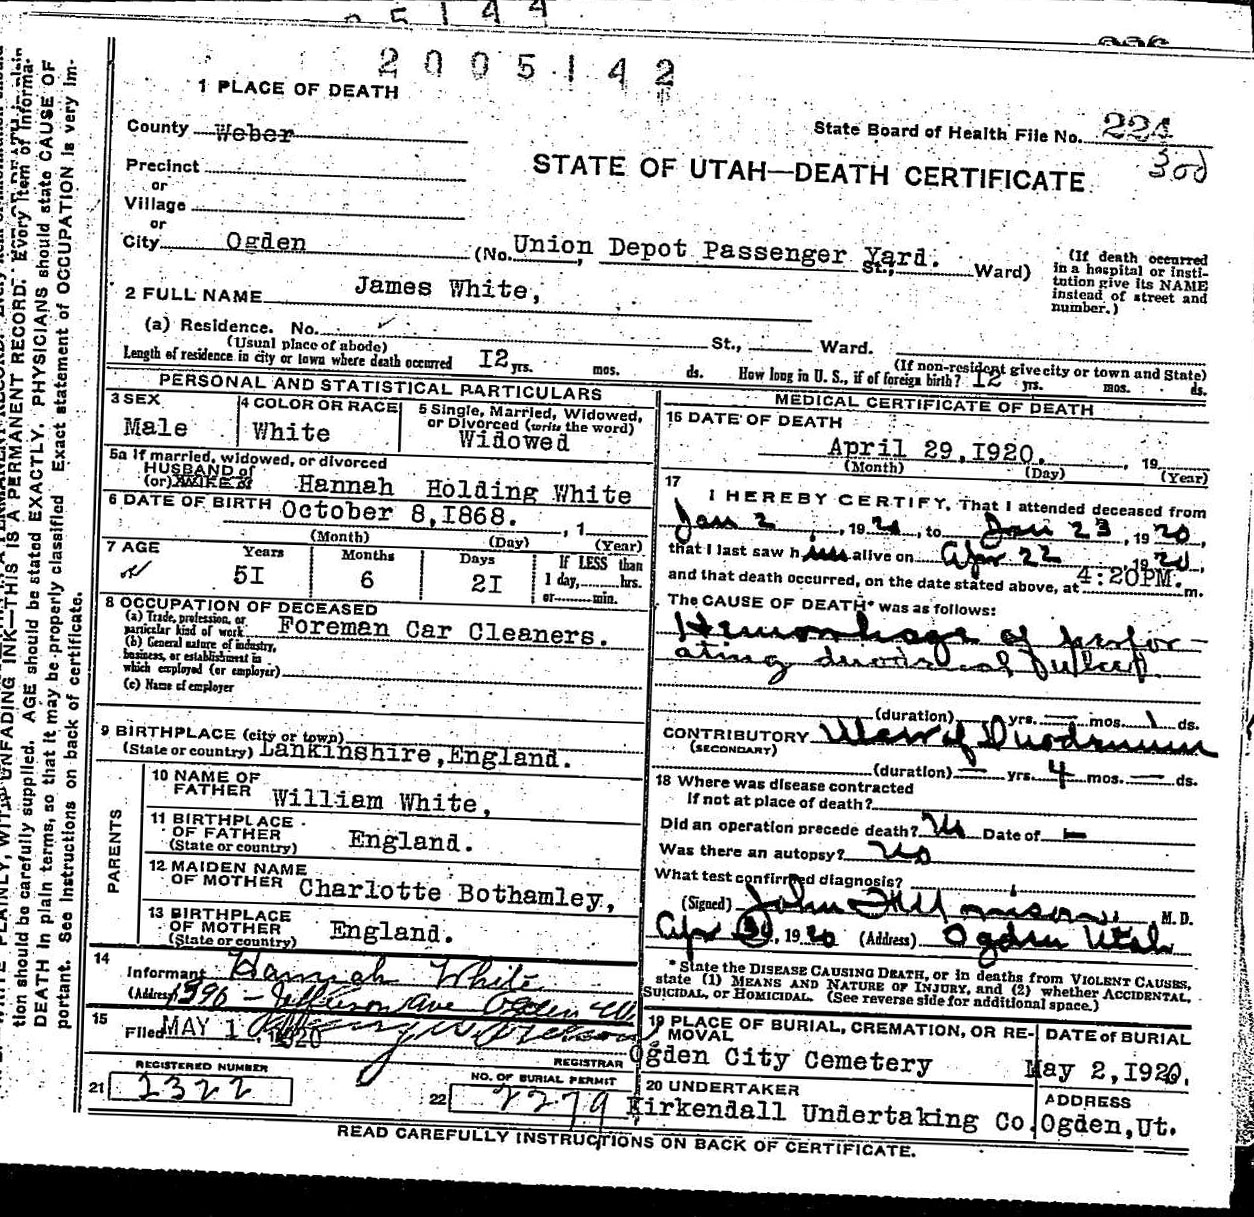 2005142
1 PLACE OF DEATH
County Weber
State Board of Health File No.
300
Precinct
or
STATE OF UTAH—DEATH CERTIFICATE
Village
or
City Ogden (No. Union Depot Passenger Yard. St.; Ward)
(If death occurred in a hospital or insti-
tution give its NAME
instead of street and
number.)
2 FULL NAME James White,
(a) Residence. No. St., Ward.
(Usual place of abode) (If non-resident give city or town and State)
Length of residence in city or town where death occurred I2 yrs. mos. ds. How long in U. S., if of foreign birth? I2 yrs. mos. ds.
PERSONAL AND STATISTICAL PARTICULARS
3 SEX
Male
4 COLOR OR RACE
White
5 Single, Married, Widowed,
or Divorced (write the word)
Widowed
5a If married, widowed, or divorced
HUSBAND of
(or) WIFE of Hannah Holding White
6 DATE OF BIRTH October 8,I868. , 1
(Month) (Day) (Year)
7 AGE Years Months Days If LESS than
5I 6 2I 1 day, hrs.
or min.
8 OCCUPATION OF DECEASED
(a) Trade, profession, or
particular kind of work Foreman Car Cleaners.
(b) General nature of industry,
business, or establishment in
which employed (or employer)
(c) Name of employer
9 BIRTHPLACE (city or town)
(State or country) Lankinshire,England.
PARENTS
10 NAME OF
FATHER William White,
11 BIRTHPLACE
OF FATHER England.
(State or country)
12 MAIDEN NAME
OF MOTHER Charlotte Bothamley,
13 BIRTHPLACE
OF MOTHER England.
(State or country)
14
Informant Hannah White
(Address) Jefferson Ave Ogden
15
Filed MAY 1 1920
REGISTRAR
REGISTERED NUMBER
21 1322
NO. OF BURIAL PERMIT
22 2279
MEDICAL CERTIFICATE OF DEATH
16 DATE OF DEATH
April 29,I920. , 19
(Month) (Day) (Year)
17
I HEREBY CERTIFY, That I attended deceased from
Jan 2, 1920, to Jan 23, 1920,
that I last saw him alive on Apr 22 1920,
and that death occurred, on the date stated above, at 4:20PM. m.
The CAUSE OF DEATH* was as follows:
Hemorrhage of perfor-
ating duodenal
(duration) — yrs. — mos. 1 ds.
CONTRIBUTORY Ulcer of Duodenum
(SECONDARY)
(duration) — yrs. 4 mos. — ds.
18 Where was disease contracted
if not at place of death?
Did an operation precede death? No Date of —
Was there an autopsy? No
What test confirmed diagnosis?
(Signed) John M. D.
Apr 30, 1920 (Address) Ogden Utah
*State the DISEASE CAUSING DEATH, or in deaths from VIOLENT CAUSES,
state (1) MEANS AND NATURE OF INJURY, and (2) whether ACCIDENTAL,
SUICIDAL, or HOMICIDAL. (See reverse side for additional space.)
19 PLACE OF BURIAL, CREMATION, OR RE-
MOVAL
Ogden City Cemetery
DATE of BURIAL
May 2,I920.
20 UNDERTAKER
Kirkendall Undertaking Co.
ADDRESS
Ogden,Ut.
READ CAREFULLY INSTRUCTIONS ON BACK OF CERTIFICATE.
tion should be carefully supplied. AGE should be stated EXACTLY. PHYSICIANS should state CAUSE OF
DEATH in plain terms, so that it may be properly classified. Exact statement of OCCUPATION is very im-
portant. See Instructions on back of certificate.